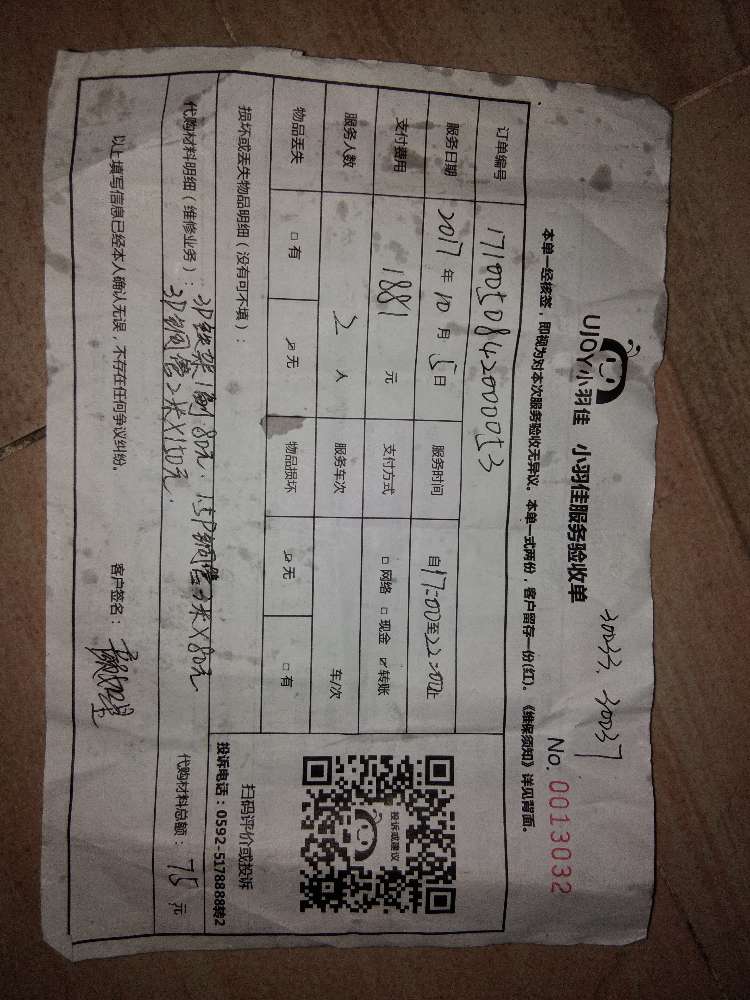 30033、30037
UJOY小羽佳 小羽佳服务验收单
No. 0013032
本单一经核签，即视为对本次服务验收无异议。本单一式两份，客户留存一份(红)。《维保须知》详见背面。
订单编号 17100508420000053
服务日期 2017年10月5日 服务时间 自17:00至22:00止
支付费用 1881 元 支付方式 □网络 □现金 ☑转账
服务人数 2 人 服务车次 车/次
物品丢失 □有 ☑无 物品损坏 ☑无 □有
投诉或建议
扫码评价或投诉
投诉电话：0592-5178888转2
损坏或丢失物品明细（没有可不填）：
代购材料明细（维修业务）：3P铁架1副·80元·1.5P铜管 米X80元
3P铜管2米X150元·
代购材料总额： 元
以上填写信息已经本人确认无误，不存在任何争议纠纷。 客户签名：